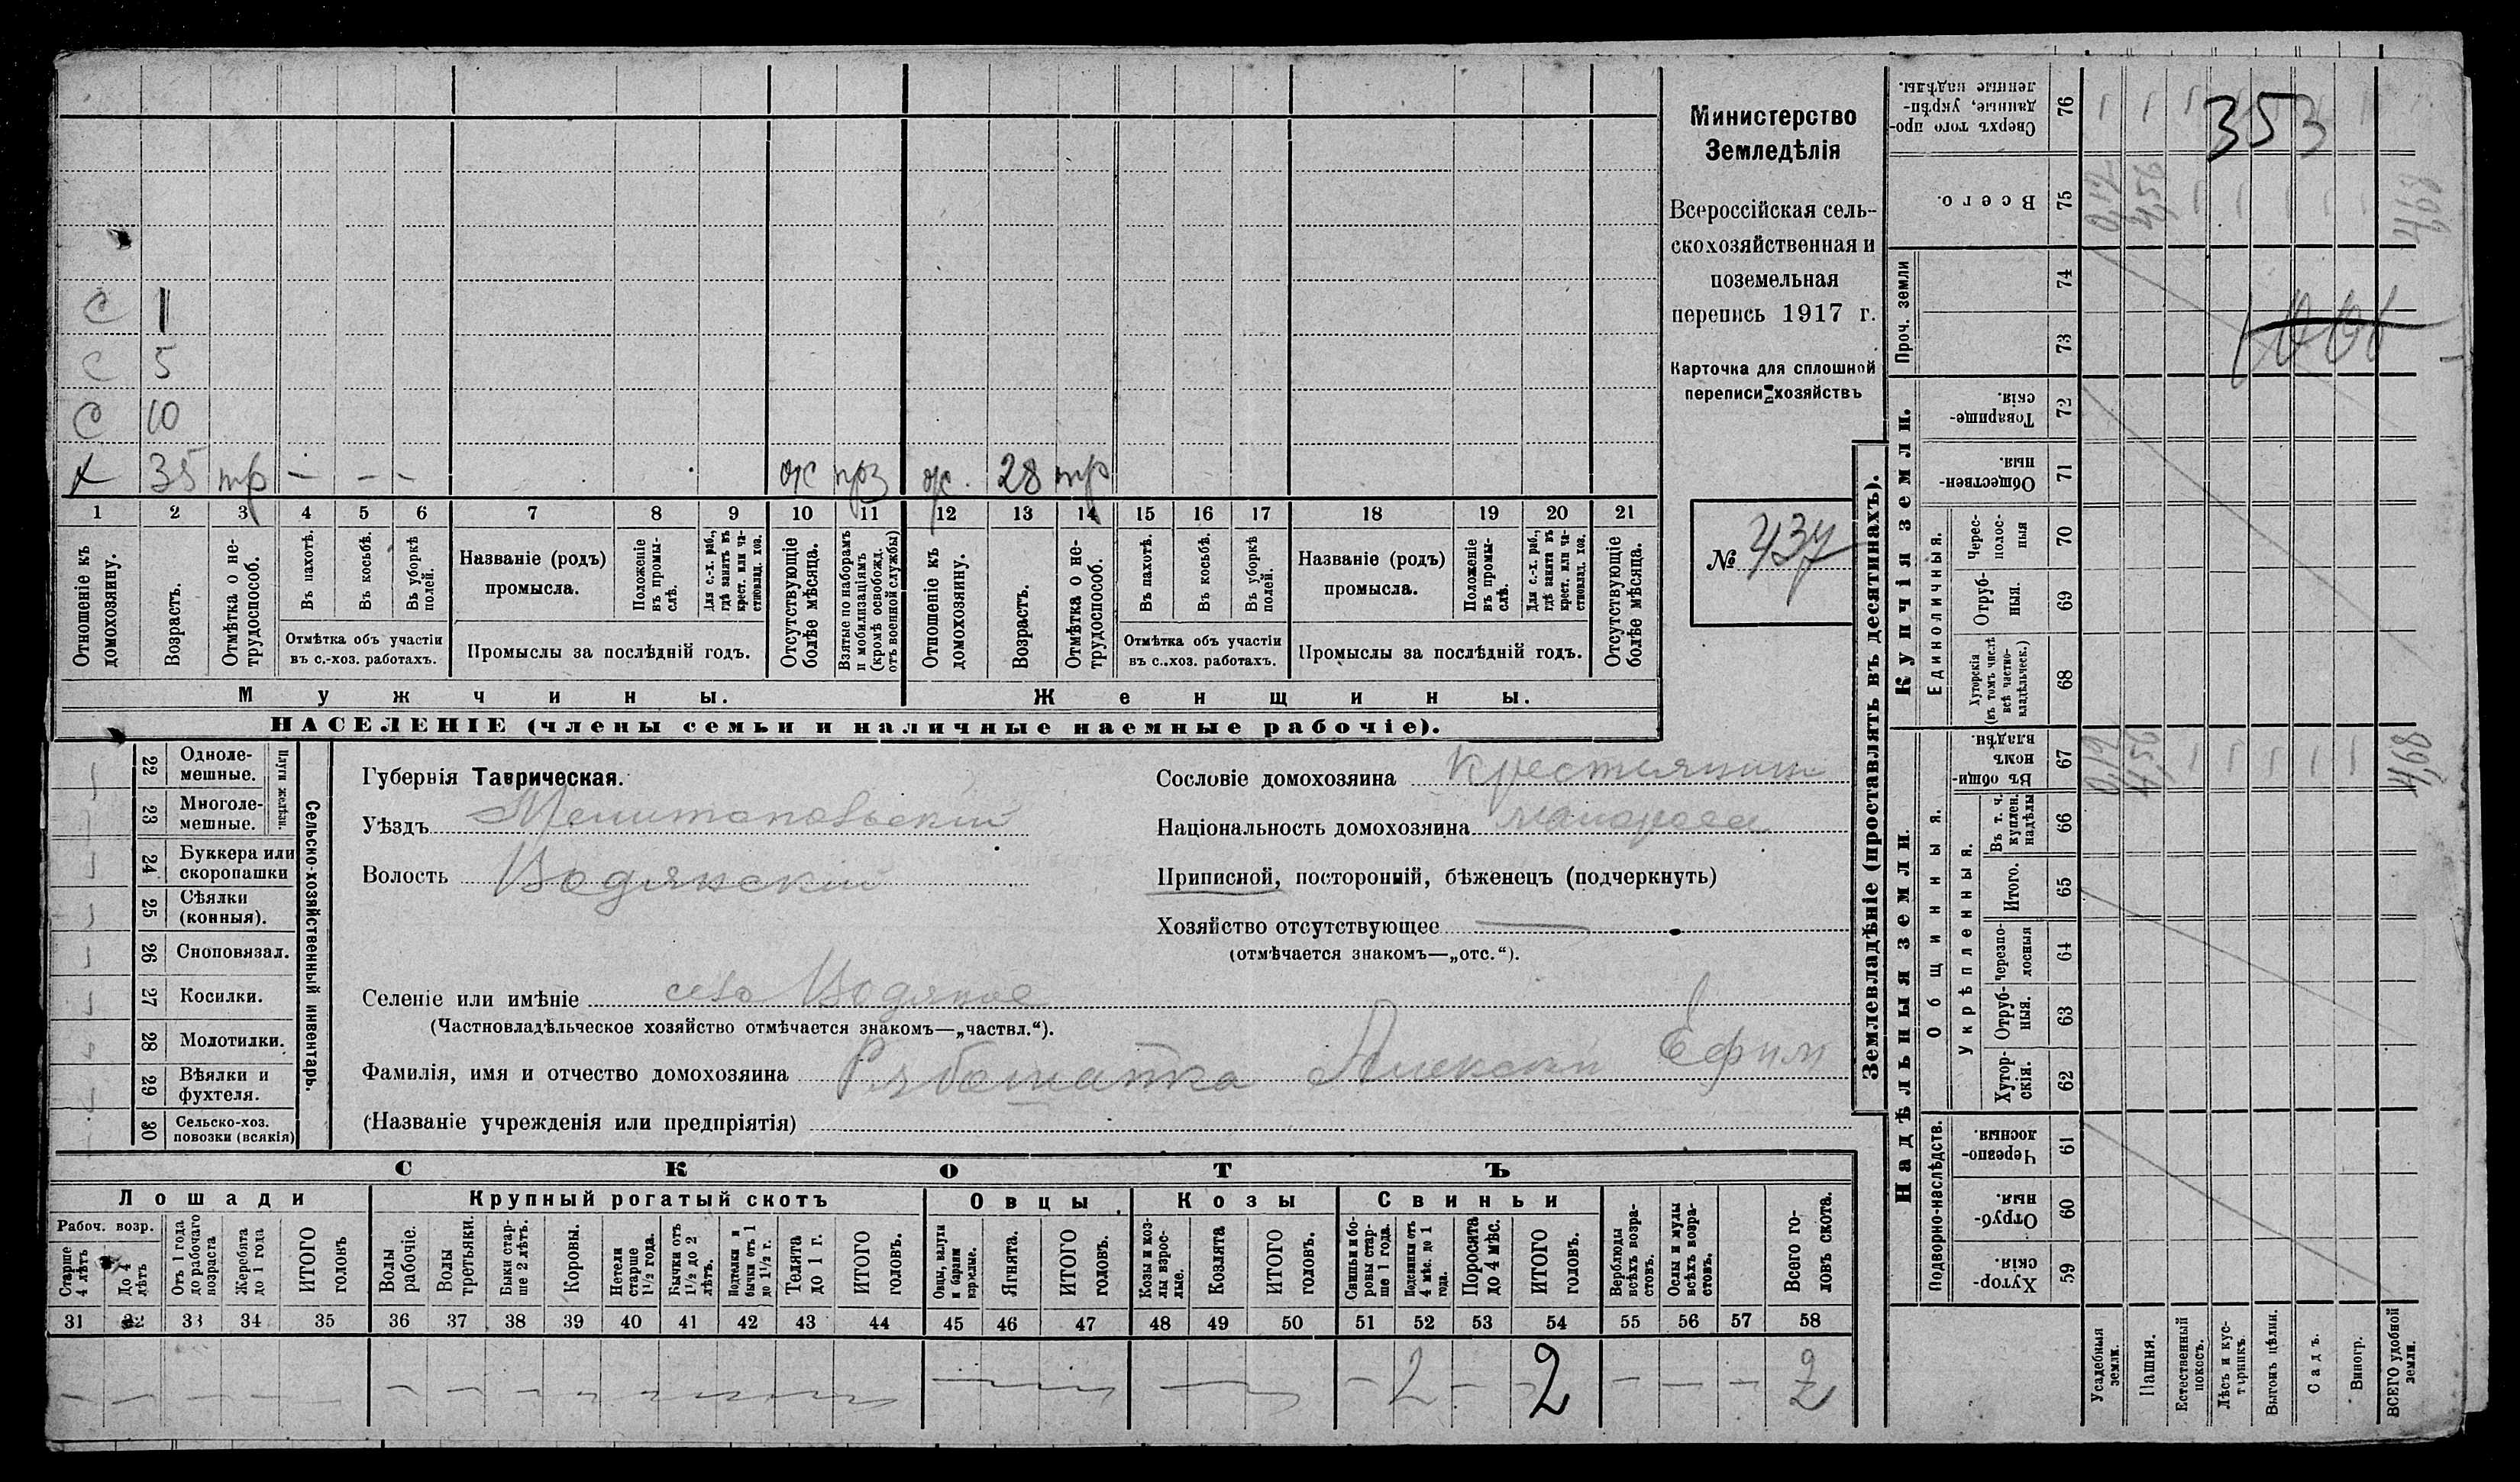 С 1
С 5
С 10
х 35 тр — — — ж прз ж. 28 тр
1 2 3 4 5 6 7 8 9 10 11 12 13 14 15 16 17 18 19 20 21
Отношеніе къ домохозяину.
Возрастъ.
Отмѣтка о не-
трудоспособ.
Въ пахотѣ.
Въ косьбѣ.
Въ уборкѣ
полей.
Отмѣтка объ участіи
въ с.-хоз. работахъ.
Названіе (родъ)
промысла.
Положеніе
въ промы-
слѣ.
Для с.-х. раб.,
гдѣ занятъ въ
крест. или ча-
стновлад. хоз.
Промыслы за послѣдній годъ.
Отсутствующіе
болѣе мѣсяца.
Взятые по наборамъ
и мобилизаціямъ
(кромѣ освобожд.
отъ военной службы)
Отношеніе къ
домохозяину.
Возрастъ.
Отмѣтка о не-
трудоспособ.
Въ пахотѣ.
Въ косьбѣ.
Въ уборкѣ
полей.
Отмѣтка объ участіи
въ с..хоз. работахъ.
Названіе (родъ)
промысла.
Положеніе
въ промы-
слѣ.
Для с.-х. раб.,
гдѣ занята въ
крест. или ча-
стновлад. хоз.
Промыслы за послѣдній годъ.
Отсутствующіе
болѣе мѣсяца.
Мужчины. Женщины.
НАСЕЛЕНІЕ (члены семьи и наличные наемные рабочіе).
Министерство
Земледѣлія
Всероссійская сель-
скохозяйственная и
поземельная
перепись 1917 г.
Карточка для сплошной
переписи хозяйствъ
№ 437
Сельско-хозяйственный инвентарь.
Плуги желѣзн.
22 Одноле-
мешные.
23 Многоле-
мешные.
24 Буккера или
скоропашки
25 Сѣялки
(конныя).
26 Сноповязал.
27 Косилки.
28 Молотилки.
29 Вѣялки и
фухтеля.
30 Сельско-хоз.
повозки (всякія)
Губернія Таврическая.
Уѣздъ Мелитопольскій
Волость Водянскій
Селеніе или имѣніе село Водяное
(Частновладѣльческое хозяйство отмѣчается знакомъ—„частвл.“).
Фамилія, имя и отчество домохозяина Рябошапка Алексей Ефим
(Названіе учрежденія или предпріятія)
Сословіе домохозяина Крестьянин
Національность домохозяина малоросс
Приписной, посторонній, бѣженецъ (подчеркнуть)
Хозяйство отсутствующее —
(отмѣчается знакомъ—„отс.“).
СКОТЪ
Лошади Крупный рогатый скотъ Овцы. Козы Свиньи
Рабоч. возр.
Старше
4 лѣтъ
До 4
лѣтъ
Отъ 1 года
до рабочаго
возраста
Жеребята
до 1 года
ИТОГО
головъ
Волы
рабочіе.
Волы
третьяки.
Быки стар-
ше 2 лѣтъ.
Коровы.
Нетели
старше
1½ года.
Бычки отъ
1½ до 2
лѣтъ.
Подтелки и
бычки отъ 1
до 1½ г.
Телята
до 1 г.
ИТОГО
головъ.
Овцы, валухи
и бараны
взрослые.
Ягнята.
ИТОГО
головъ.
Козы и коз-
лы взрос-
лые.
Козлята
ИТОГО
головъ.
Свиньи и бо-
ровы стар-
ше 1 года.
Подсвинки отъ
4 мѣс. до 1
года.
Поросята
до 4 мѣс.
ИТОГО
головъ.
Верблюды
всѣхъ возра-
стовъ.
Ослы и мулы
всѣхъ возра-
стовъ.
Всего го-
ловъ скота.
31 32 33 34 35 36 37 38 39 40 41 42 43 44 45 46 47 48 49 50 51 52 53 54 55 56 57 58
2 2 2
Землевладѣніе (проставлять въ десятинахъ).
Купчія земли.
Надѣльныя земли.
Проч. земли
Единоличныя.
Общинныя.
Укрѣпленныя.
Подворно-наслѣдств.
Сверхъ того про-
данные, укрѣп-
ленные надѣлы. 76
353
Всего. 75 0,12 4,56 4,68
74
73
Товарище-
скія. 72
Обществен-
ныя. 71
Черес-
полос-
ныя 70
Отруб-
ныя. 69
Хуторскія
(въ томъ числѣ
всѣ частно-
владѣльческ.) 68
Въ общин-
номъ
владѣн. 67 4,56 4,68
Въ т. ч.
куплен.
надѣлы 66
Итого. 65
Черезпо-
лосныя 64
Отруб-
ныя. 63
Хутор-
скія. 62
Черезпо-
лосныя. 61
Отруб-
ныя. 60
Хутор-
скія. 59
Усадебныя
земли.
Пашня.
Естественный
покосъ.
Лѣсъ и кус-
тарникъ.
Выгонъ цѣлин.
Садъ.
Виногр.
ВСЕГО удобной
земли.